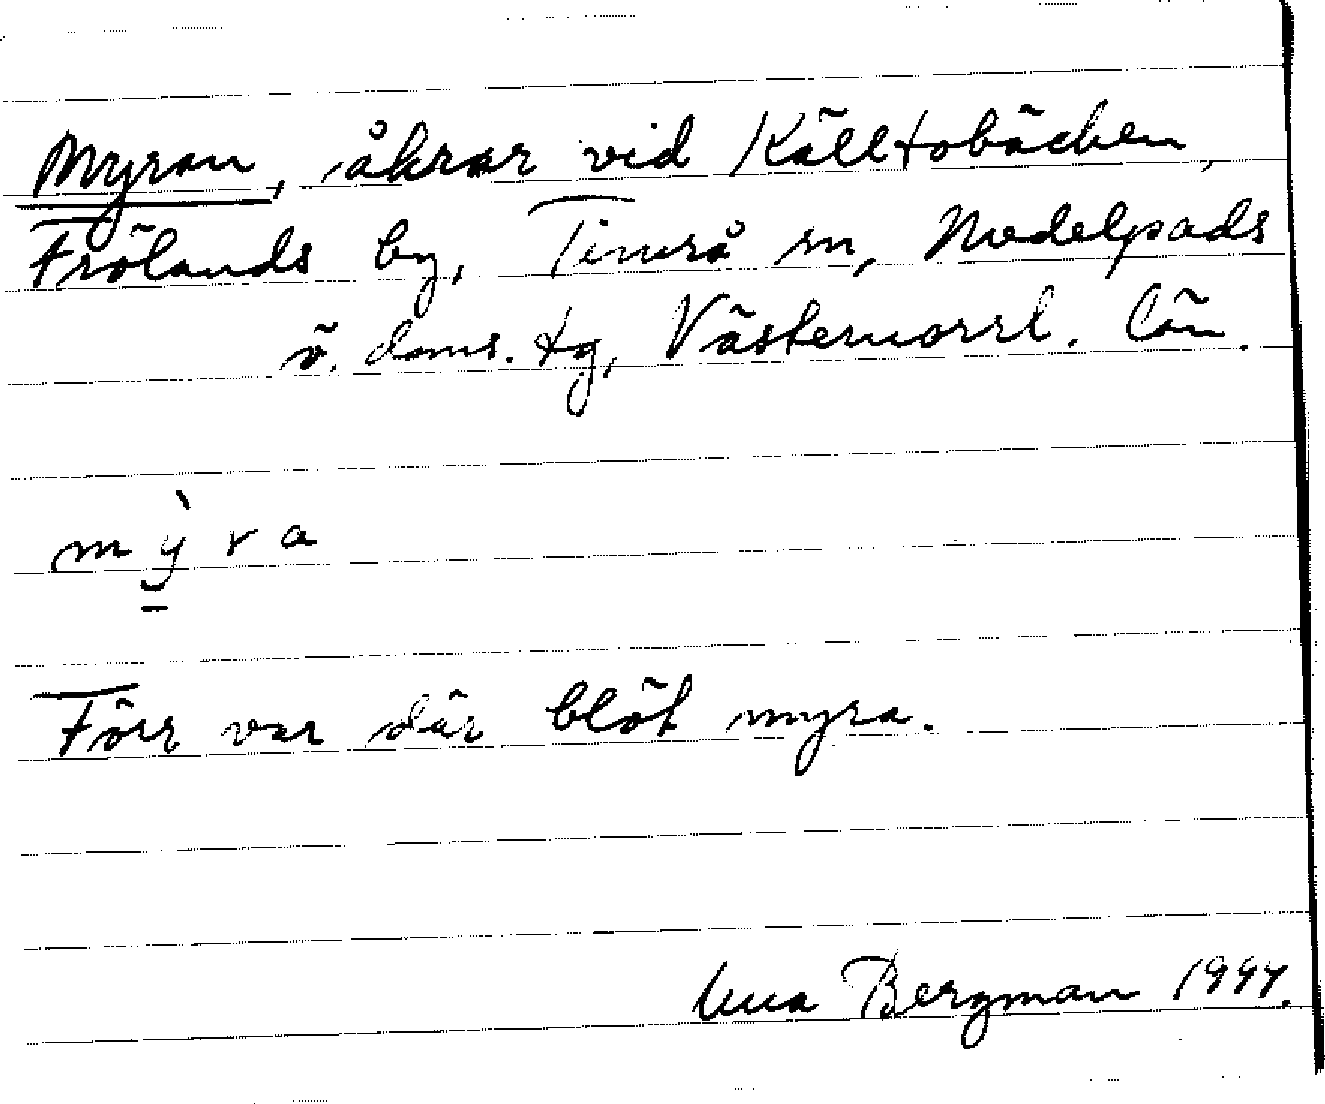 Myran, åkrar vid Källtobäcken,
Frölands by, Timrå sn, Medelpads
ö. doms. tg, Västernorrl. län.
mỳra
Förr var där blöt myra.
Bergman